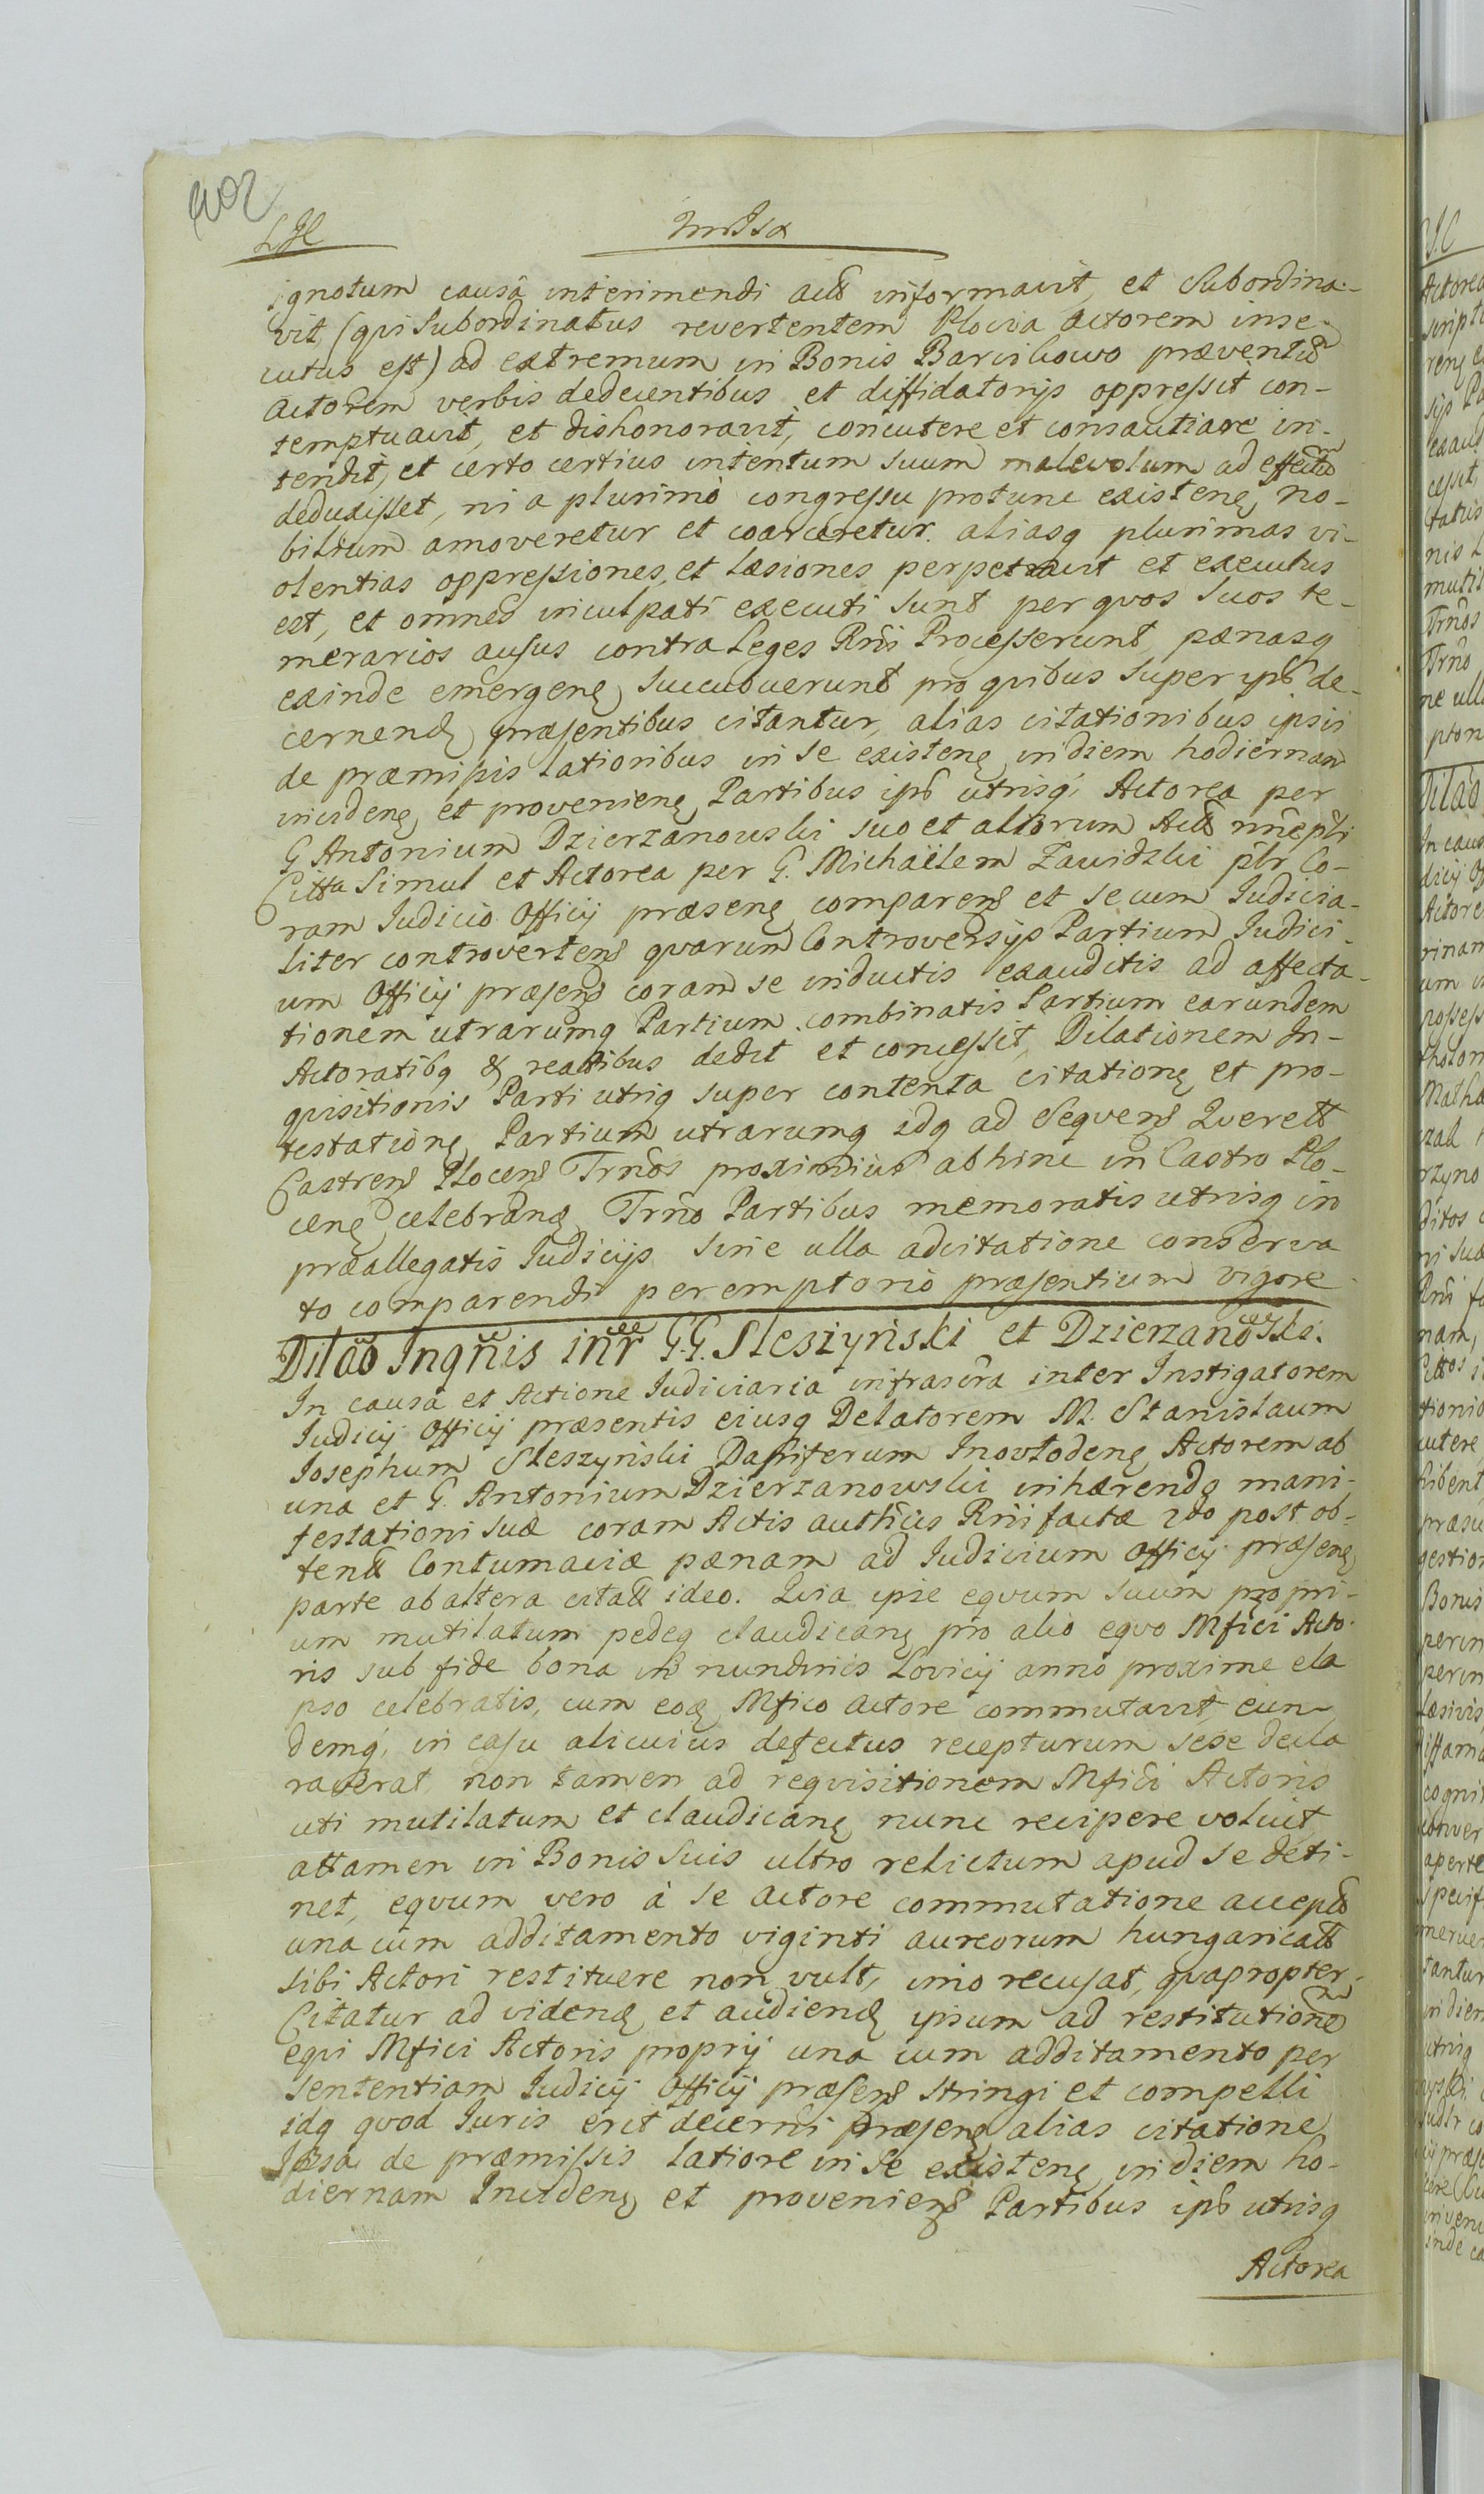 402
ignotum causâ interimendi actt informavit, et Subordina-
vit, (qui Subordinatus revertentem Plocia Actorem inse-
cutus est) ad extremum in Bonis Barcikowo præventũ
Actorem verbis dedecentibus et diffidatorijs oppressit con-
temptuavit, et dishonoravit, concutere et consautiare in-
tendit, et certo certius intentum suum malevolum ad effectũ
deduxisset, ni a plurimò congressu protunc existenς no-
bilium amoveretur et coarceretur. aliasq plurimas vi-
olentias oppressiones, et læsiones perpetravit et executus
est, et omnes inculpati executi sunt per quos suos te-
merarios ausus contra Leges Rni Processerunt, pænasq
exinde emergenς succubuerunt pro quibus super ips de-
cernendς præsentibus citantur, alias citationibus ipsis
de præmissis latioribus in se existenς in diem hodiernam
incidenς et provenienς Partibus ips utrisq Actorea per
G Antonium Dzierzanowski suo et aliorum Actt nne pltr
Citta simul et Actorea per G. Michaëlem Zawidzki pltr Co-
ram Iudicio Officij præsenς comparens et secum Iudicia-
liter controvertens quarum Controversijs Partium Iudici-
um Officij præsens coram se inductis exauditis ad affecta-
tionem utrarumq Partium combinatis Partium earundem
Actoratibq & reatibus dedit et concessit, Dilationem In-
quisitionis Parti utriq super contenta citationς et pro-
testationς Partium utrarumq idq ad Sequens Querell
Castrens Plocens Trnos proximius abhinc in Castro Plo-
cenς celebrandς Trno Partibus memoratis utrisq in
præallegatis Iudicijs sine ulla adcitatione conserva
to comparendi peremptorio præsentium vigore
Dilão Inqñis inr̃ G.G. Sleszyński et Dzierzanowski.
In causâ et Actione Iudiciaria infrascra inter Instigatorem
Iudicij Officij præsentis eiusq Delatorem M. Stanislaum
Iosephum Sleszyński Dapiferum Inovłodenς Actorem ab
una et G. Antonium Dzierzanowski inhærendo mani-
festationi suæ coram Actis authcis Rni factæ 2do post ob-
tentt Contumaciæ pænam ad Iudicium Officij præsenς
parte ab altera citatt ideo. Quia ipse equum suum propri-
um mutilatum pedeq claudicanς pro alio equo Mfici Acto-
ris sub fide bona in nundinis Lovicij anno proxime ela
pso celebratis, cum eodς Mfico actore commutavit, eun-
demq, in casu alicuius defectus recepturum sese decla
raverat non tamen ad requisitionem Mfici Actoris
uti mutilatum et claudicanς nunc recipere voluit
attamen in Bonis suis ultro relictum apud se deti-
net, equum vero à se actore commutatione accept
una cum additamento viginti aureorum hungaricatt
sibi Actori restituere non vult, imo recusat, quapropter
Citatur ad videndς et audiendς ipsum ad restitutionẽ
equi Mfici Actoris proprij una cum additamento per
sententiam Iudicij Officij præsens stringi et compelli
idq quod Iuris erit decerni præsenς alias citatione
Ipsa de præmissis latiore in se existenς in diem ho-
diernam Incidenς et proveniens Partibus ips utrisq
Actorea